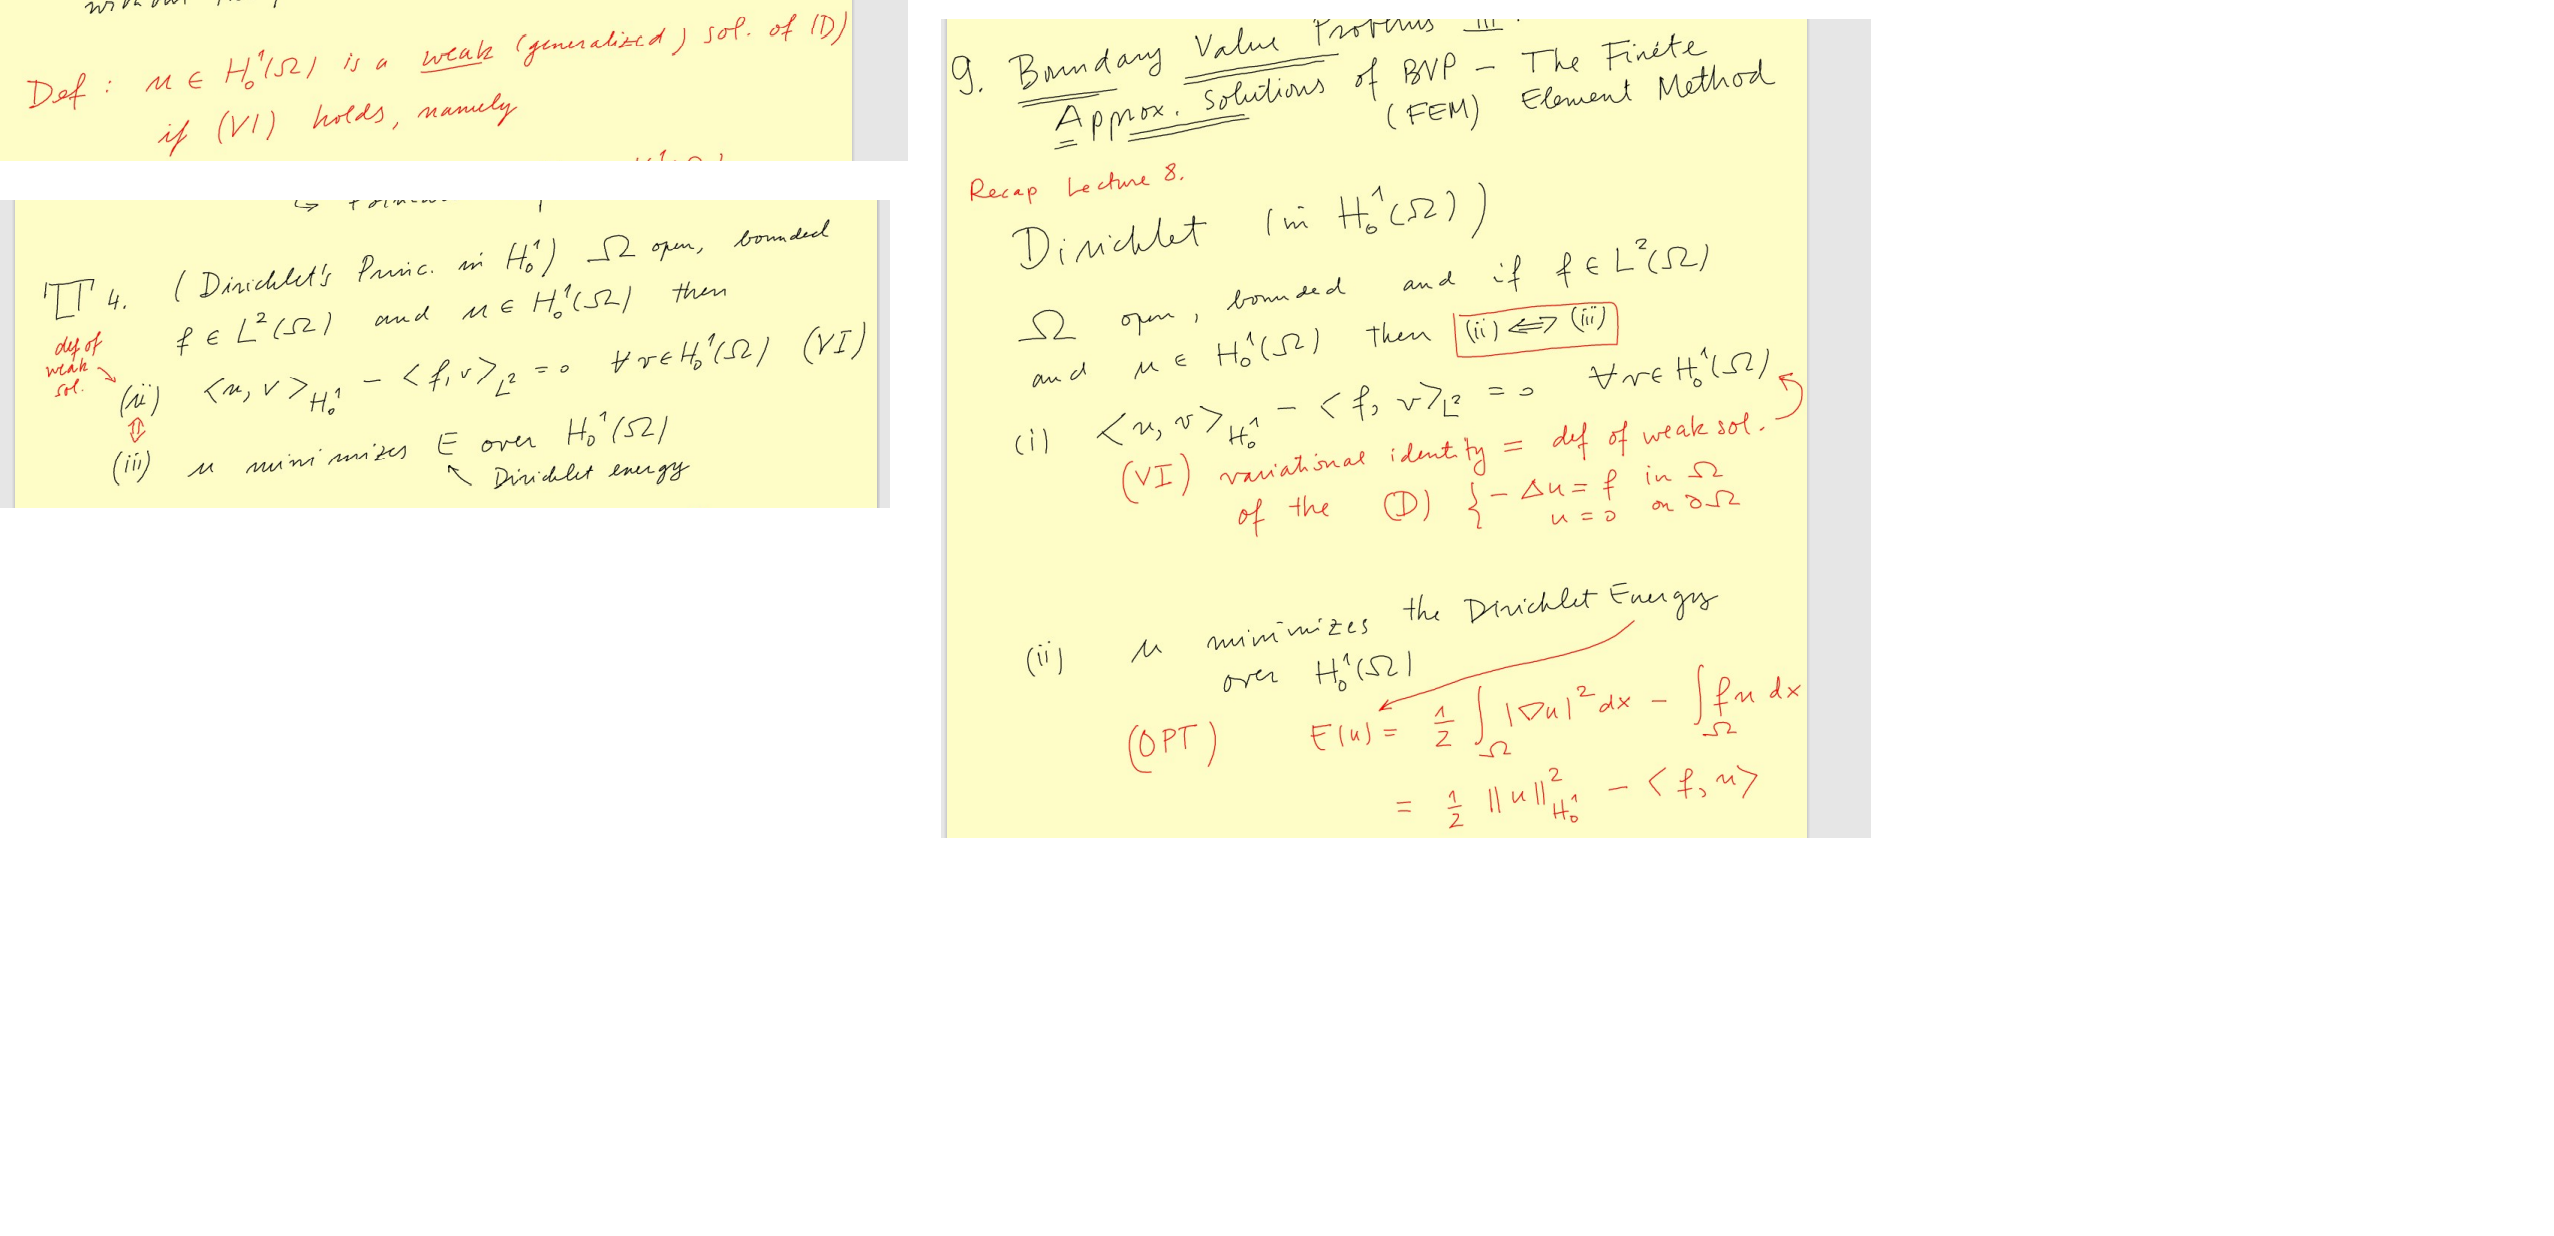 Def : u ∈ H₀¹(Ω) is a weak (generalized) sol. of (D)
if (VI) holds, namely
T 4. (Dirichlet's Princ. in H₀¹) Ω open, bounded
f ∈ L²(Ω) and u ∈ H₀¹(Ω) then
def of
weak
sol.
(ii) <u, v>_{H₀¹} - <f, v>_{L²} = 0 ∀ v ∈ H₀¹(Ω) (VI)
⇕
(iii) u minimizes E over H₀¹(Ω)
Dirichlet energy
9. Boundary Value Problems III.
Approx. Solutions of BVP - The Finite
(FEM) Element Method
Recap Lecture 8.
Dirichlet (in H₀¹(Ω))
Ω open, bounded and if f ∈ L²(Ω)
and u ∈ H₀¹(Ω) then (ii) ⟺ (iii)
(i) <u, v>_{H₀¹} - <f, v>_{L²} = 0 ∀ v ∈ H₀¹(Ω)
(VI) variational identity = def of weak sol.
of the (D) { -Δu = f in Ω
u = 0 on ∂Ω
(ii) u minimizes the Dirichlet Energy
over H₀¹(Ω)
(OPT) E(u) = 1/2 ∫_Ω |∇u|² dx - ∫_Ω f u dx
= 1/2 ||u||²_{H₀¹} - <f, u>